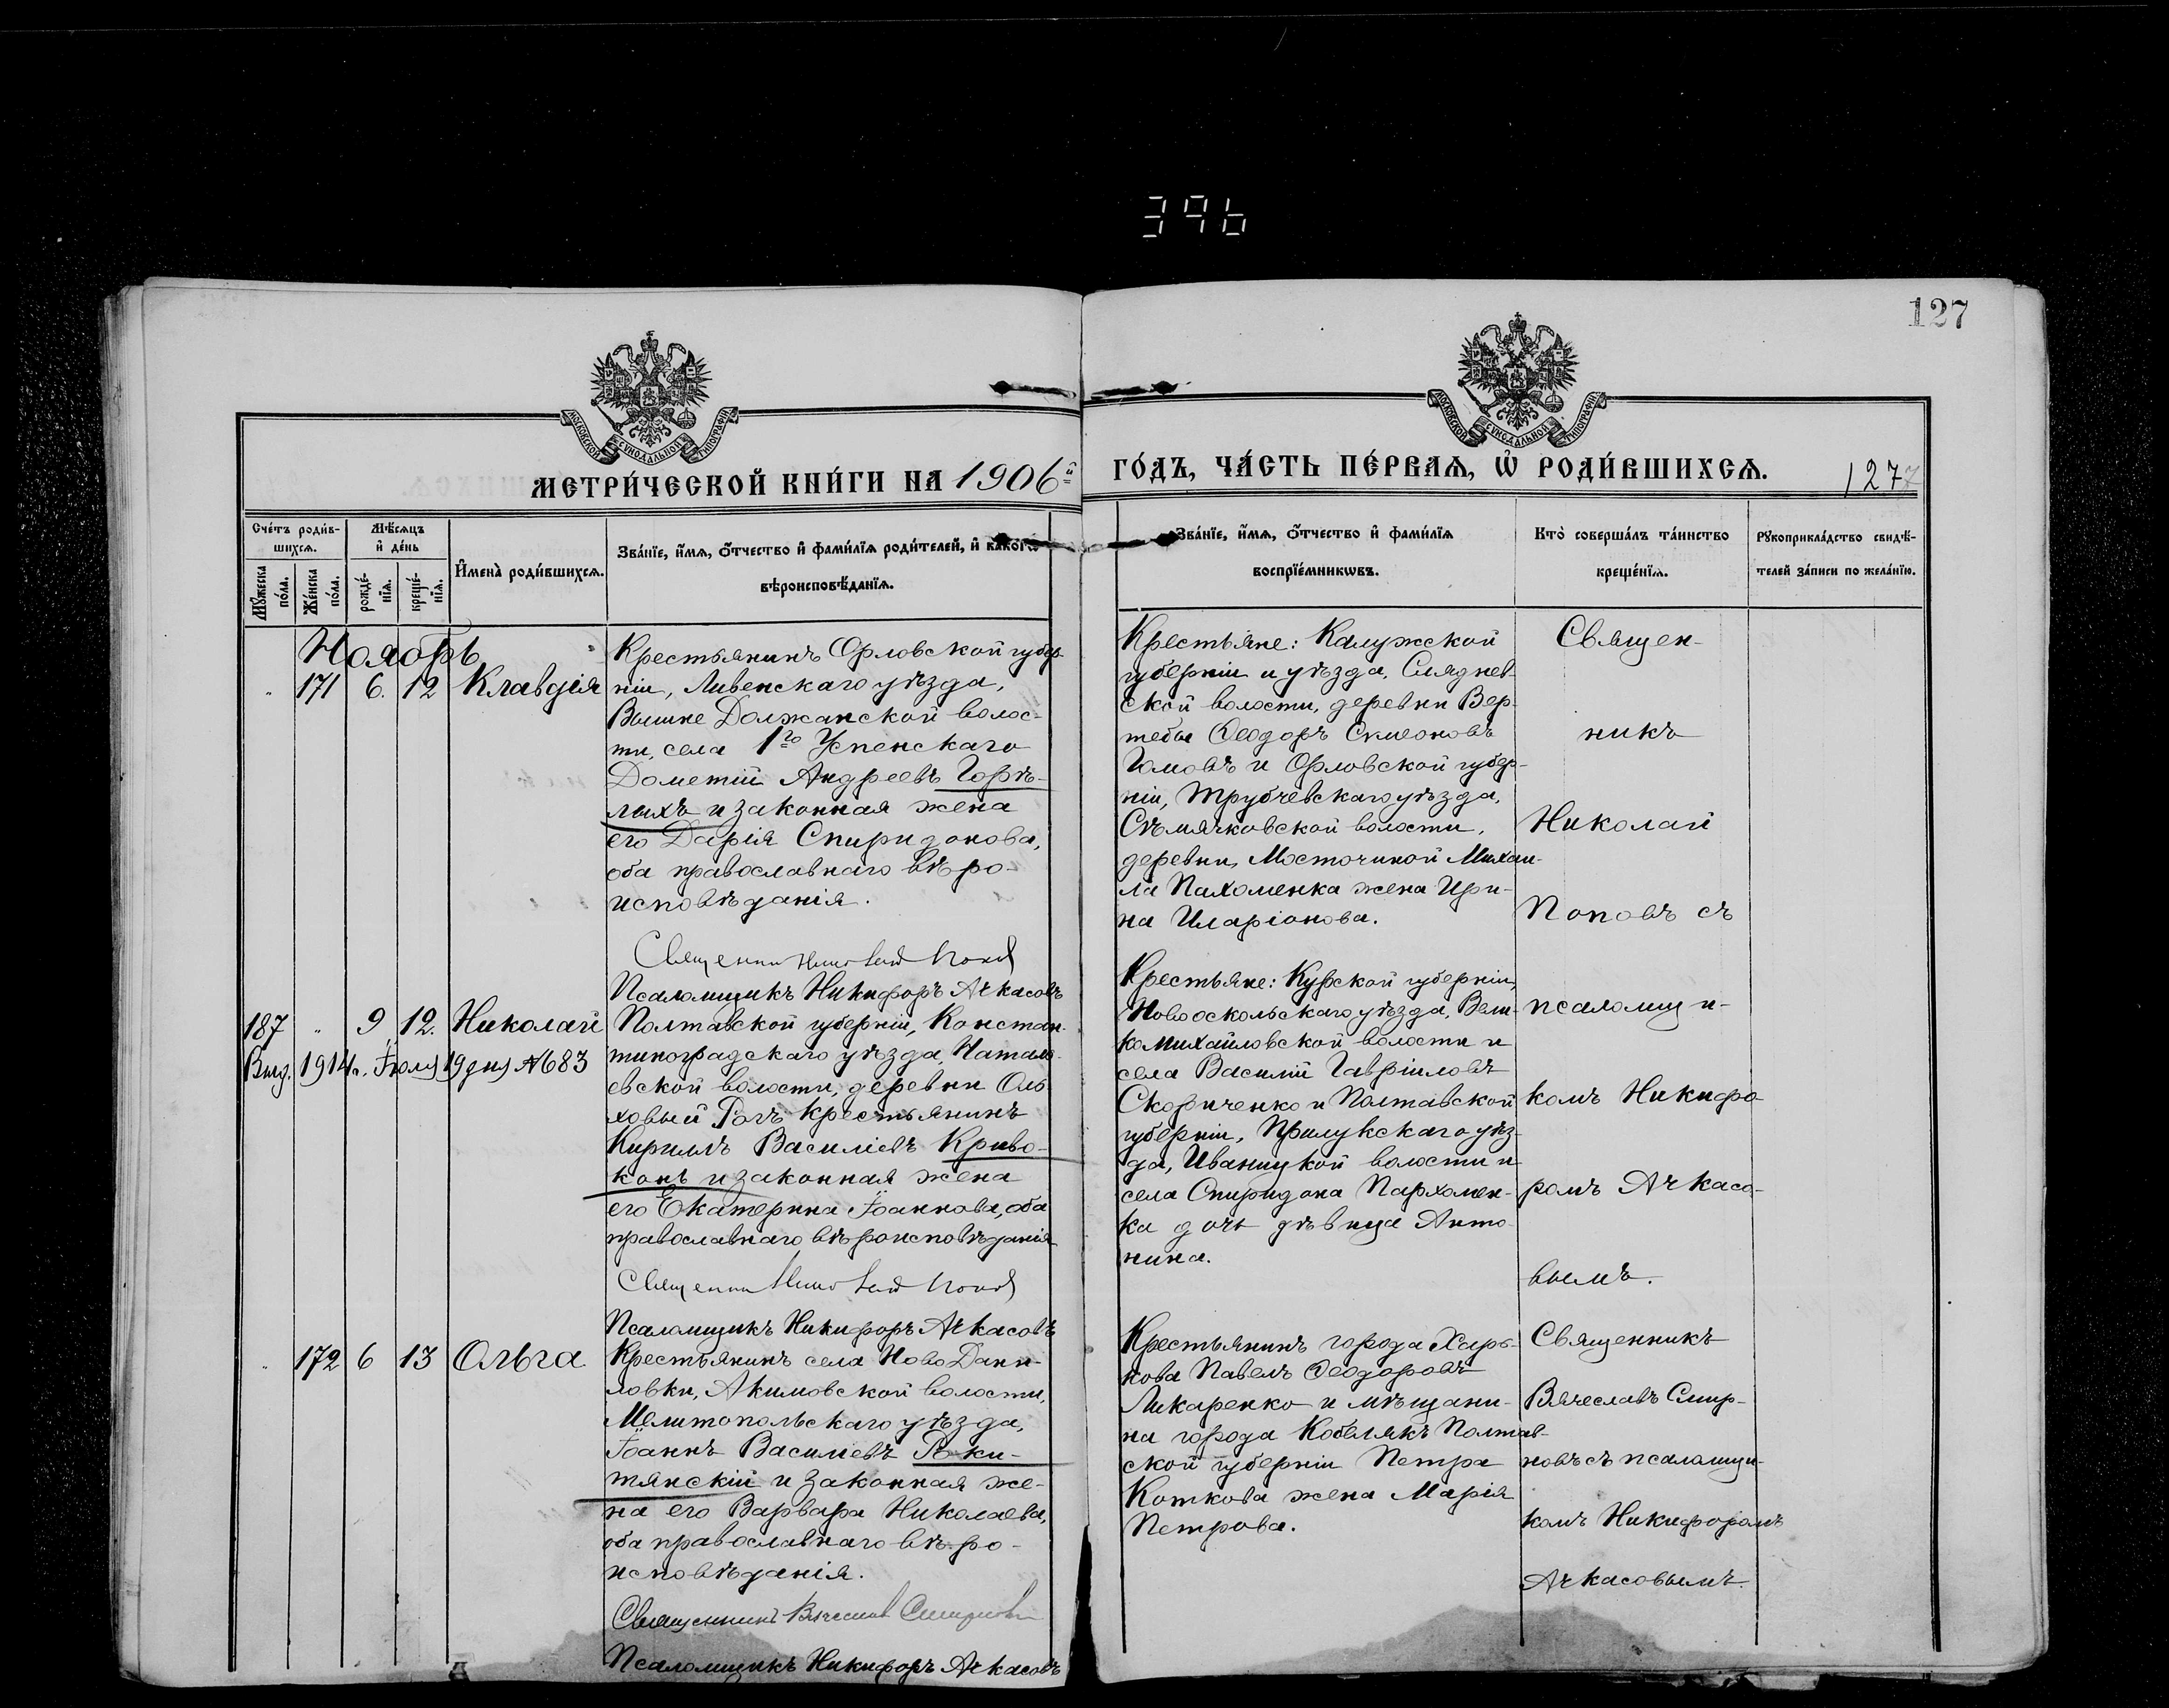 396
127
МОСКОВСКОЙ СѴНОДАЛЬНОЙ ТИПОГРАФІИ
МОСКОВСКОЙ СѴНОДАЛЬНОЙ ТИПОГРАФІИ
МЕТРИ́ЧЕСКОЙ КНИ́ГИ НА 1906й
ГО́ДЪ, ЧА́СТЬ ПЕ́РВАѦ, Ѡ҆ РОДИ́ВШИХСѦ.
127
Сче́тъ роди́в-
шихсѧ.
Мѣ́сѧцъ
и҆ де́нь
Мꙋ́жеска
по́ла.
Же́нска
по́ла.
рожде́-
нїѧ.
креще́-
нїѧ.
И҆мена̀ роди́вшихсѧ.
Зва́нїе, и҆́мѧ, ѻ҆́тчество и҆ фами́лїѧ роди́телей, и҆ како́гѡ
вѣроисповѣ́данїѧ.
Зва́нїе, и҆́мѧ, ѻ҆́тчество и҆ фами́лїѧ
воспрїе́мникѡвъ.
Кто̀ соверша́лъ та́инство
креще́нїѧ.
Рꙋкоприкла́дство свидѣ́-
телей за́писи по жела́нїю.
Ноябрь
„ 171 6. 12 Клавдія
Крестьянинъ Орловской губер-
ніи, Ливенскаго уѣзда,
Вышне Должанской волос-
ти, села 1го Успенскаго
Дометій Андреевъ Горѣ-
лыхъ и законная жена
его Дарія Спиридонова,
оба православнаго вѣро-
исповѣданія.
Священникъ Николай Поповъ
Псаломщикъ Никифоръ Ачкасовъ
Крестьяне: Калужской
губерніи и уѣзда, Сляднев-
ской волости, деревни Вер-
тебы Ѳеодоръ Симеоновъ
Гомовъ и Орловской губер-
ніи, Трубчевскаго уѣзда,
Сѣмячковской волости,
деревни Мосточиной Михаи-
ла Пахоменка жена Ири-
на Иларіонова.
Священ-
никъ
Николай
Поповъ съ
псаломщи-
комъ Никифо-
ромъ Ачкасо-
вымъ.
187 „ 9 12. Николай
Выд. 1914 г. Іюля 19 дня №683
Полтавской губерніи, Констан-
тиноградскаго уѣзда, Наталь-
евской волости, деревни Оль-
ховый Рогъ крестьянинъ
Кириллъ Василіевъ Криво-
конь и законная жена
его Екатерина Іоаннова, оба
православнаго вѣроисповѣданія
Священникъ Николай Поповъ
Псаломщикъ Никифоръ Ачкасовъ
Крестьяне: Курской губерніи,
Новооскольскаго уѣзда, Вели-
комихайловской волости и
села Василій Гавріиловъ
Скориченко и Полтавской
губерніи, Прилукскаго уѣз-
да, Иваницкой волости и
села Спиридона Пархомен-
ка дочь дѣвица Анто-
нина.
„ 172 6 13 Ольга
Крестьянинъ села Ново Дани-
ловки, Акимовской волости,
Мелитопольскаго уѣзда,
Іоаннъ Василіевъ Раки-
тянскій и законная же-
на его Варвара Николаева,
оба православнаго вѣро-
исповѣданія.
Священникъ Вячеславъ Смирновъ
Псаломщикъ Никифоръ Ачкасовъ
Крестьянинъ города Харь-
кова Павелъ Ѳеодоровъ
Ликаренко и мѣщани-
на города Кобелякъ Полтав-
ской губерніи Петра
Коткова жена Марія
Петрова.
Священникъ
Вячеславъ Смир-
новъ съ псаломщи-
комъ Никифоромъ
Ачкасовымъ.